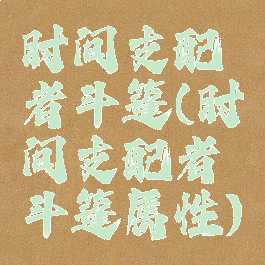 时间支配
者斗篷(时
间支配者
斗篷属性)